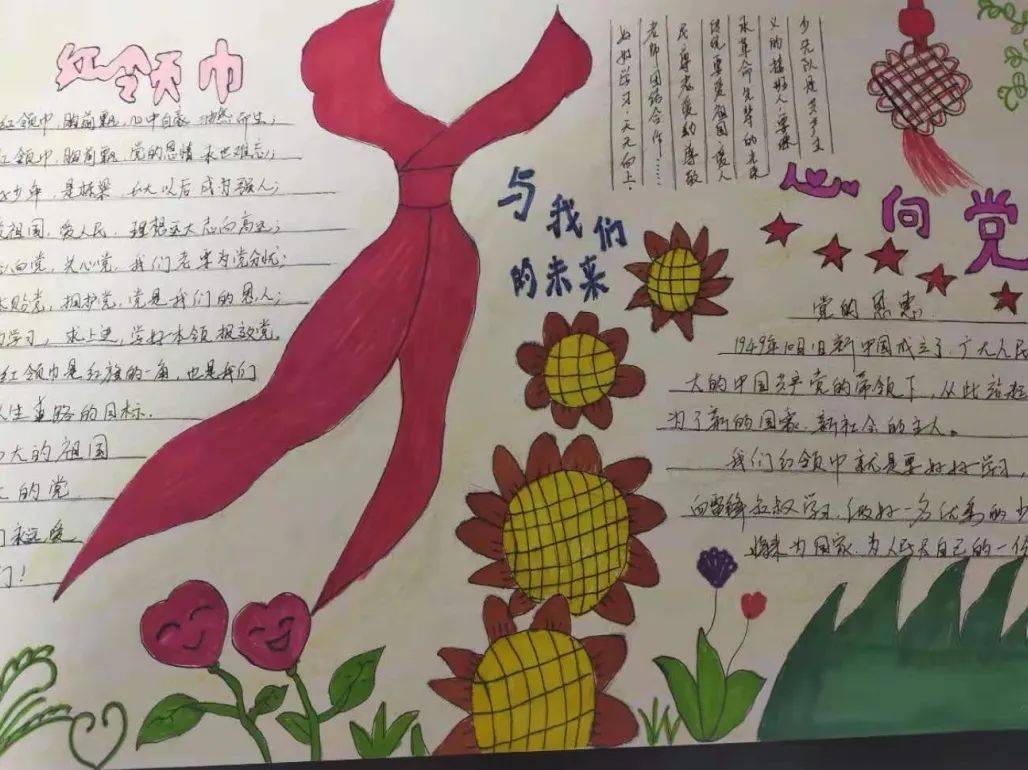 红领巾
红领巾,胸前飘,心中自豪油然而生;
红领巾,胸前飘,党的恩情永也难忘;
少年,是栋梁,长大以后成为强人;
祖国,爱人民,理想远大志向高远;
心向党,关心党,我们老要为党分忧;
体贴党,拥护党,党是我们的恩人;
学习,求上进,学好本领报效党。
红领巾是红旗的一角,也是我们
人生直路的目标.
大的祖国
的党
永远爱
们!
少先队是共产主
义的接班人,要继
承革命先辈的光荣
传统,要爱祖国,爱人
民,尊老爱幼,尊敬
老师,团结合作……
好好学习,天天向上.
与我们
的未来
心向党
党的恩惠
1949年10月1日新中国成立了,广大人民
大的中国共产党的带领下,从此站起
为了新的国家、新社会的主人。
我们红领巾就是要好好学习,
向雷锋叔叔学习,做好一名优秀的少
将来为国家,为人民尽自己的一份